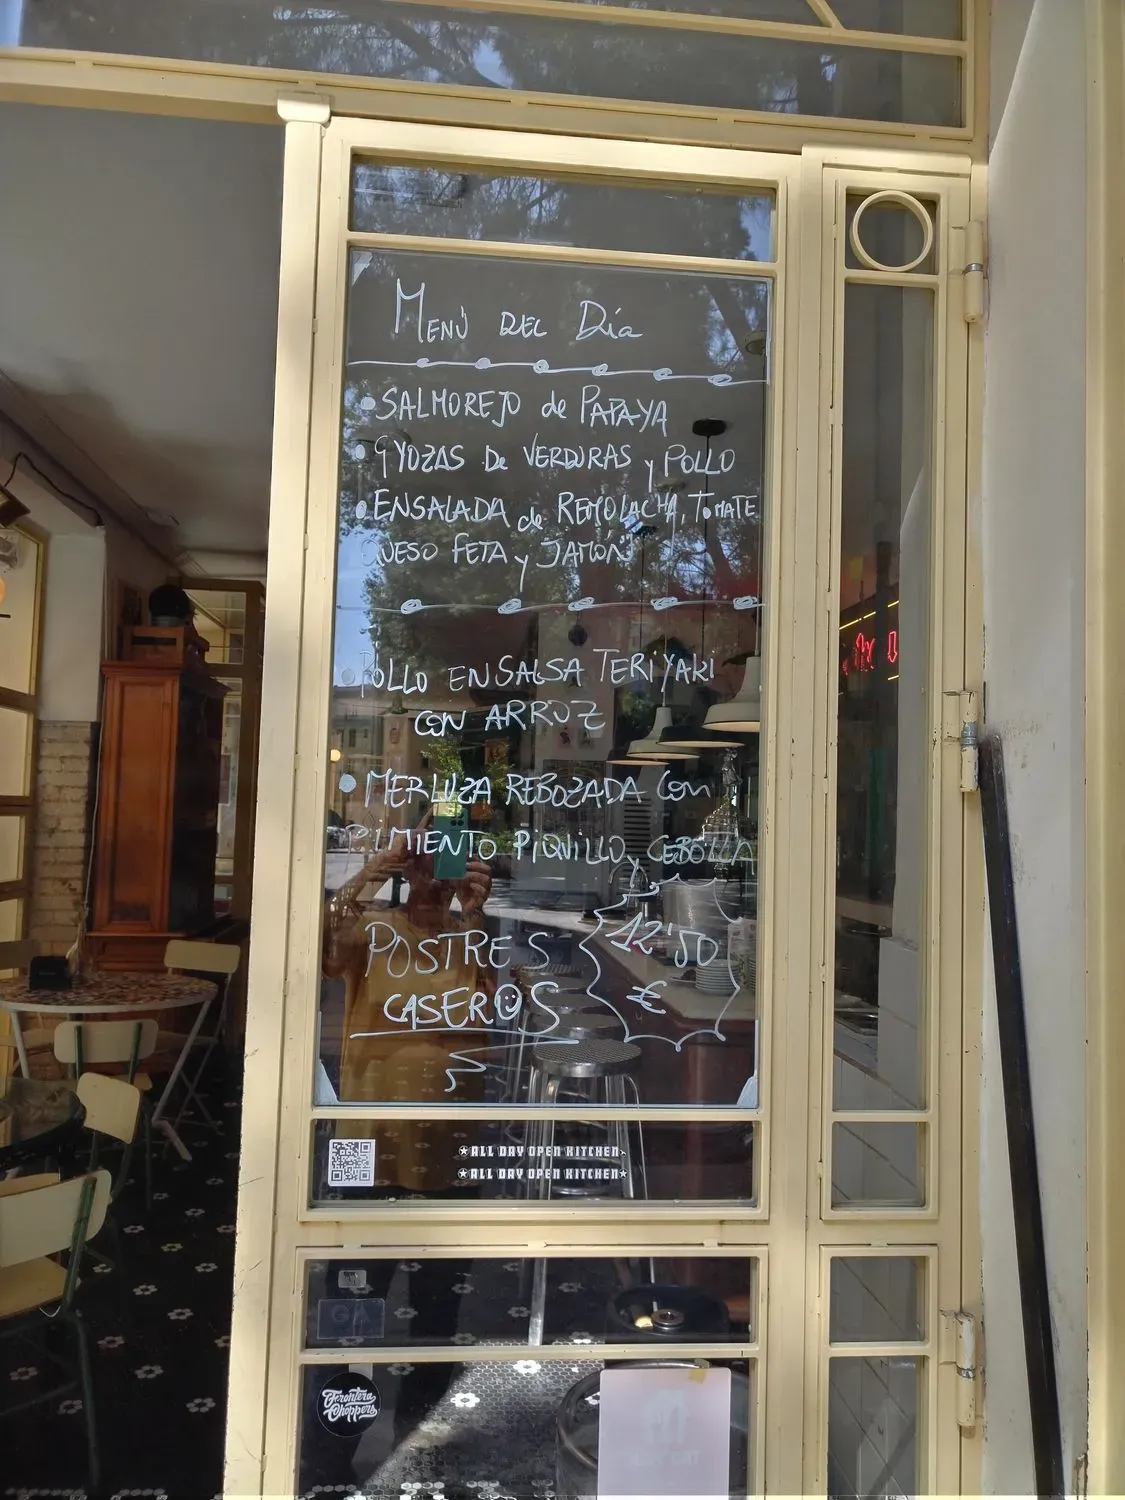 Menú del Día
•SALMOREJO de PAPAYA
•GYOZAS De VERDURAS y POLLO
•ENSALADA de REMOLACHA, ToMATE
QUESO FETA y JAMÓN
•POLLO EN SALSA TERIYAKI
CON ARROZ
•MERLUZA REBOZADA Con
PIMIENTO PIQUILLO y CEBOLLA
POSTRES
CASEROS
12'50
€
★ALL DAY OPEN KITCHEN★
★ALL DAY OPEN KITCHEN★
GA
Frontera
Choppers